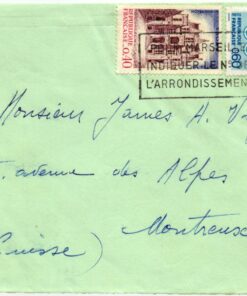 REPUBLIQUE FRANCAISE
0,40
0,60
POUR MARSEILLE
INDIQUER LE N°
L'ARRONDISSEMENT
Monsieur James A. V
avenue des Alpes
Montreux
(Suisse)